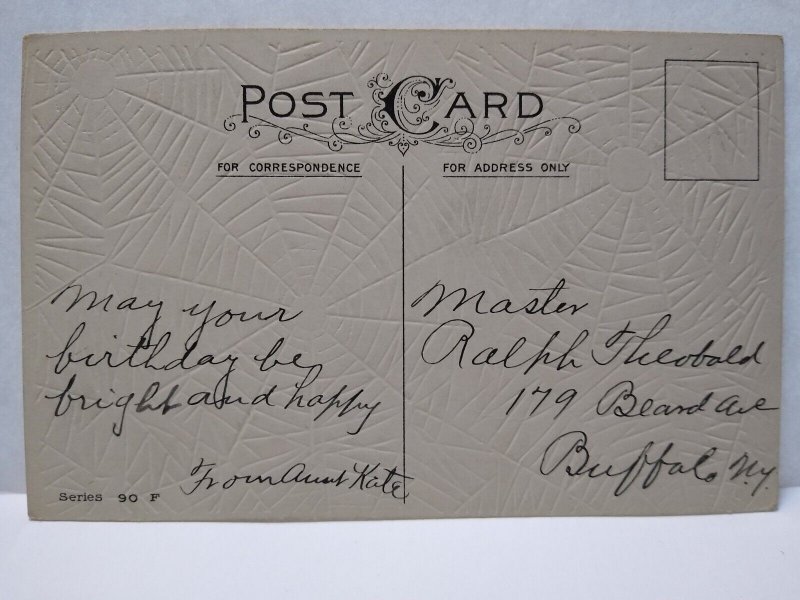 POST CARD
FOR CORRESPONDENCE
FOR ADDRESS ONLY
May your
birthday be
bright and happy
From Aunt Kate
Series 90 F
Master
Ralph Theobald
179 Beard Ave
Buffalo N.Y.